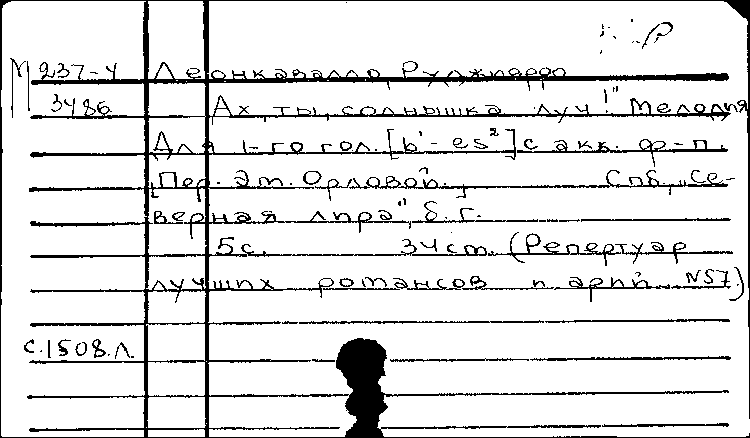 М 237-4 Леонкавалло, Руджиеро
3486 Ах, ты, солнышка луч!" Мелодия
Для 1-го гол. [b'- es²] с акк. ф-п.
[Пер. Эт. Орловой.] Спб, „Се-
верная лира", б. г.
5 с. 34 cm. (Репертуар
лучших романсов и арий N57.)
с.1508.л.